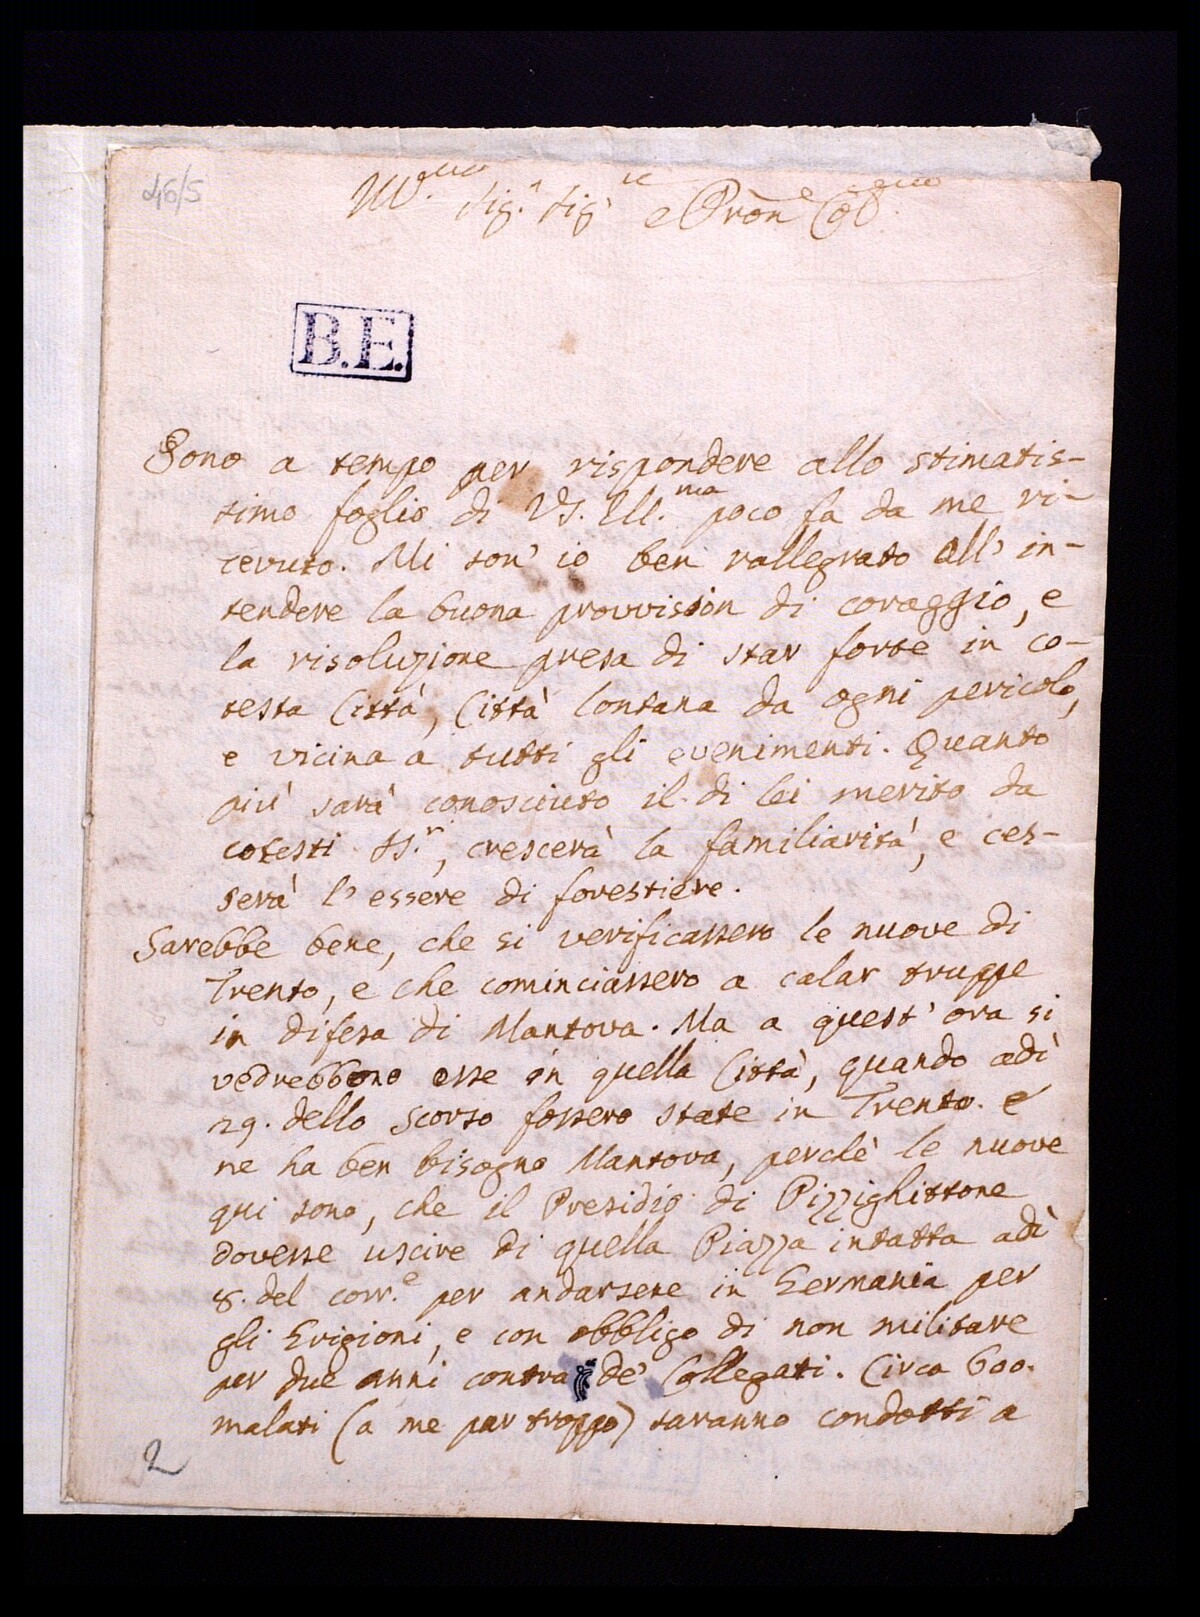 46/5
Ill.mo Sig.r Sig.r e Pron Col.mo
B.E.
Sono a tempo per rispondere allo stimatis-
simo foglio di VS. Ill.ma poco fa da me ri-
cevuto. Mi son' io ben rallegrato all' in-
tendere la buona provvision di coraggio, e
la risoluzione presa di star forte in co-
testa Città, Città lontana da ogni pericolo,
e vicina a tutti gli evenimenti. Quanto
piu' sarà conosciuto il di lei merito da
cotesti SS.ri, crescerà la familiarità, e ces-
serà l' essere di forestiere.
Sarebbe bene, che si verificassero le nuove di
Trento, e che cominciassero a calar truppe
in difesa di Mantova. Ma a quest' ora si
vedrebbono esse in quella Città, quando adì
29. dello scorso fossero state in Trento. e
ne ha ben bisogno Mantova, perchè le nuove
qui sono, che il Presidio di Pizzighittone
dovesse uscire di quella Piazza intatta adì
8. del corr.e per andarsene in Germania per
gli Grigioni, e con obbligo di non militare
per due anni contra de' Collegati. Circa 600.
malati (a me par troppo) saranno condotti a
2